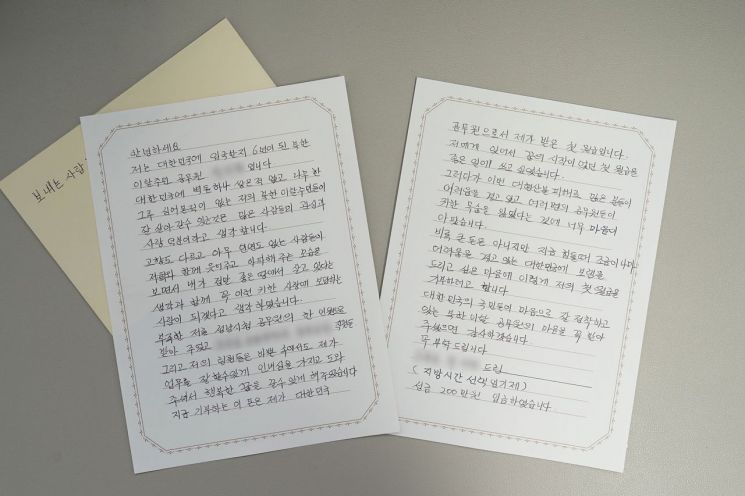 보내는 사람
안녕하세요
저는 대한민국에 입국한지 6년이 된 북한
이탈주민 공무원 입니다
대한민국에 벽돌하나 쌓은적 없고 나무 한
그루 심어본적이 없는 저의 북한 이탈주민들이
잘 살아 갈수 있는것은 많은 사람들의 관심과
사랑 덕분이라고 생각 합니다.
고향도 다르고 아무 인연도 없는 사람들이
저희와 함께 웃어주고 아파해 주는 모습을
보면서 내가 정말 좋은 땅에서 살고 있다는
생각과 함께 꼭 이런 귀한 사랑에 보답하는
사람이 되겠다고 생각 하였습니다.
부족한 저를 성남시청 공무원의 한 일원으로
받아 주었고 직원들
그리고 저의 팀원들은 바쁜 속에서도 제가
업무를 잘 할수 있게 인내심을 가지고 도와
주셔서 행복한 길을 갈수 있게 해주었습니다
지금 기부하는 이 돈은 제가 대한민국
공무원으로서 제가 받은 첫 월급입니다.
저에게 있어서 꿈에 시작이 였던 첫 월급을
좋은 일에 쓰고 싶었습니다.
그러다가 이번 대형산불 피해로 많은 분들이
어려움을 겪고 있고 여러명의 공무원들이
귀한 목숨을 잃었다는 것에 너무 마음이
아팠습니다
비록 큰 돈은 아니지만 지금 힘들때 조금이나마
어려움을 겪고 있는 대한민국에 보탬을
드리고 싶은 마음에 이렇게 저의 첫 월급을
기부하려고 합니다
대한민국의 국민들의 마음으로 잘 정착하고
있는 북한 이탈 공무원의 마음을 꼭 받아
주셨으면 감사하겠습니다.
꼭 부탁드립니다
드림
(지방시간 선택 임기제)
성금 200만원 입금하였습니다